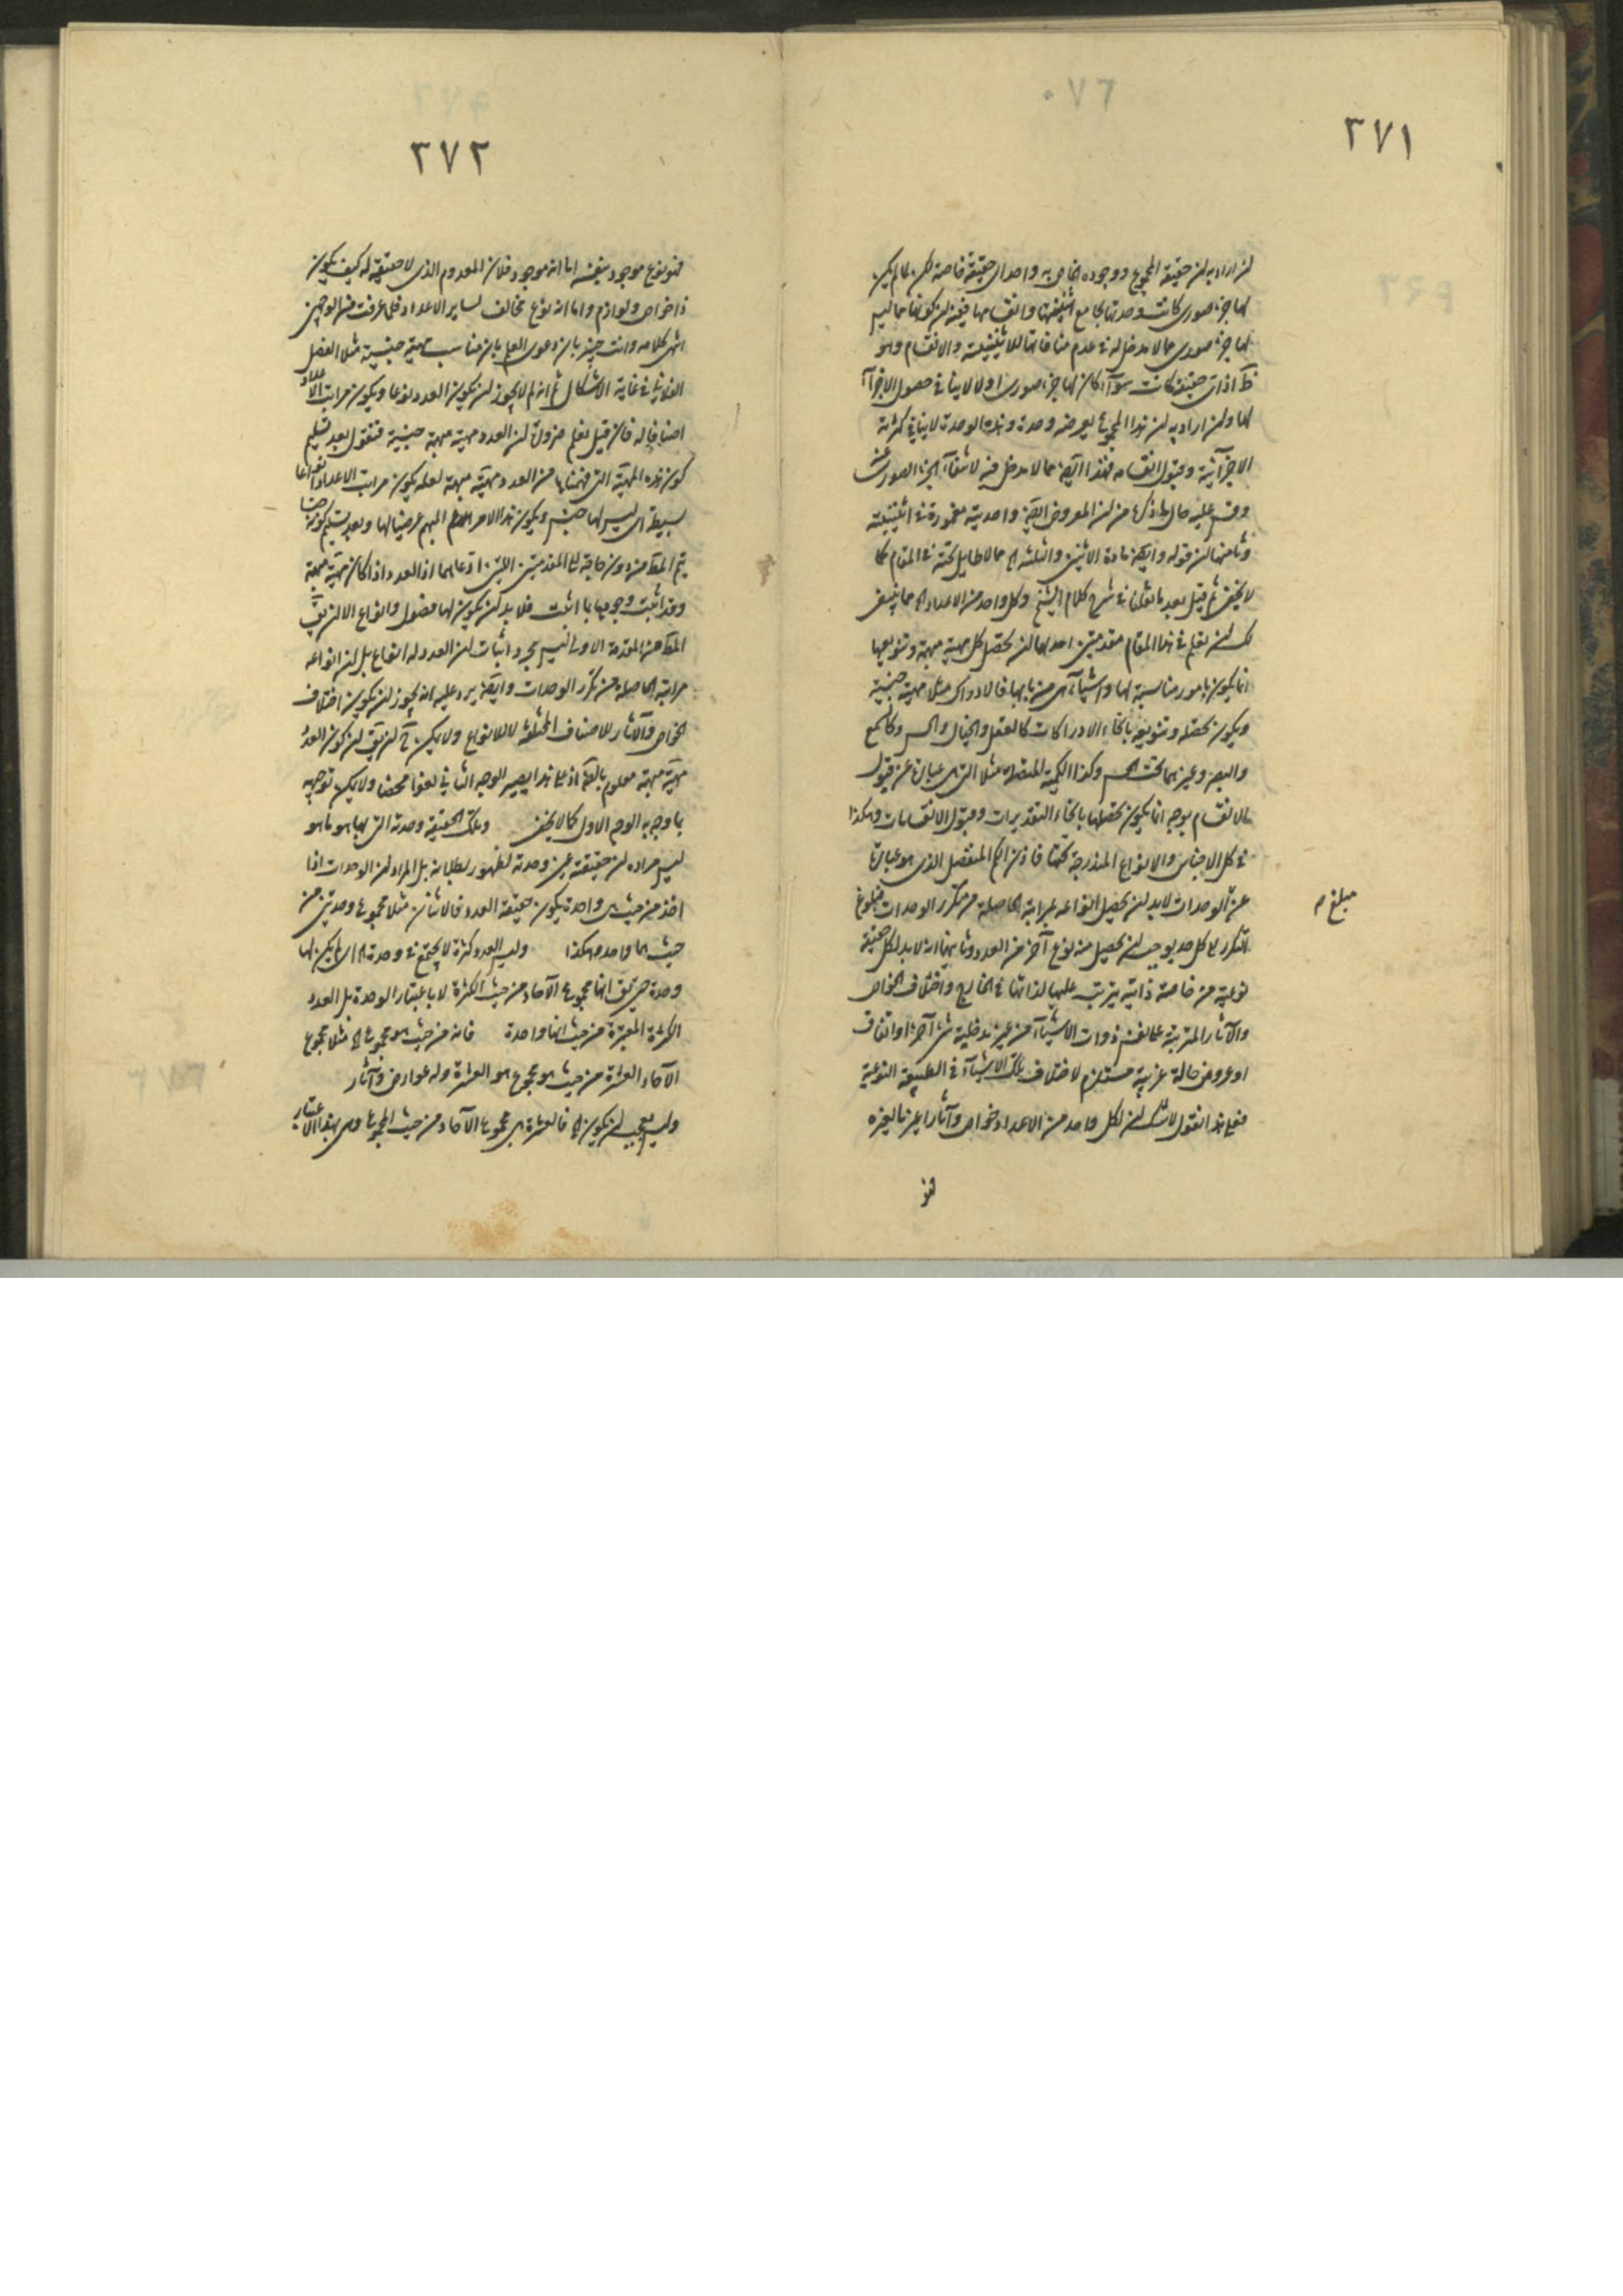 ٣٧١
ان اراد به ان حقيقة المجموع ووجوده الخاص به واحد اى حقيقة خاصة لكن لما لم يكن
لها جزء صورى كانت وحدتها تجامع اثنينيتها وانقسامها ففيه ان كونها مما ليس
لها جزء صورى مما لا مدخل له فى عدم منافاتها للاثنينية والانقسام وهو
اذ اى حقيقة كانت سواء كان لها جزء صورى او لا لا ينافى حصول الاجزاء
لها وان اراد به ان هذا المجموع يعرضه وحدة وهذه الوحدة لا ينافى كثرته
الاجزائية وقبول انقسامه فهذا ايضا مما لا مدخل فيه لانتفاء الجزء الصورى عنه
وقس عليه حال ما ذكره من ان المعروض ايضا واحديته مغمورة فى اثنينيته
وثامنها ان قوله وايضا مادة الاثنين والثلثة الخ مما لا طايل تحته فى المقام كما
لا يخفى ثم قيل بعد ما نقلناه فى شرح كلام الشيخ وكل واحد من الاعداد الخ مما ينبغى
لك ان تعلم فى هذا المقام مقدمتين احديهما ان تحصل كل مهية مبهمة وتنويعها
انما يكون بامور مناسبة لها واشياء هى من بابها فالادراك مثلا مهية جنسية
ويكون تحصله وتنويعه بانحاء الادراكات كالتعقل والخيال والحس وكالسمع
والبصر وغيرهما تحت الحس وكذا الكمية المتصلة مثلا التى هى عبارة عن قبول
الانقسام بوجه انما يكون تحصلها بانحاء التقديرات وقبول الانقسامات وهكذا
فى كل الاجناس والانواع المندرجة تحتها فاذن الكم المنفصل الذى هو عبارة
عن الوحدات لابد ان يحصل انواعه بمراتبه الحاصلة من تكرر الوحدات فبلوغ
التكرر الى كل حد يوجب ان يحصل منه نوع آخر من العدد وثانيهما انه لابد لكل حقيقة
نوعية من خاصة ذاتية يترتب عليها لذاتها فى الخارج واختلاف الخواص
والآثار المترتبة على نفس ذوات الاشياء من غير مدخلية شئ آخر او اتفاق
او عروض حالة غريبة مستلزم لاختلاف تلك الاشياء فى الطبيعة النوعية
فعلى هذا نقول لا شك ان لكل واحد من الاعداد خواص وآثارا غير ما لغيره
مبلغ م
فهو
٣٧٢
فهو نوع موجود بنفسه اما انه موجود فلان المعدوم الذى لا حقيقة له كيف يكون
ذا خواص ولوازم واما انه نوع مخالف لساير الاعداد فلما عرفت من الوجهين
انتهى كلامه وانت خبير بان دعوى العلم بان مناسب مهية جنسية مثلا الفصل
الفلانى فى غاية الاشكال ثم انه لم لا يجوز ان يكون العدد نوعا ويكون مراتب الاعداد
اصنافا له فان قيل نعلم ضرورة ان العدد مهية مبهمة جنسية فنقول بعد تسليم
كون هذه المهية التى فهمناها من العدد مهية مبهمة لعله يكون مراتب الاعداد انواعا
بسيطة اى ليس لها جنس ويكون هذا الامر الاعم المبهم عرضيا لها وبعد تسليم كونه جنسا
يتم المط من دون حاجة الى المقدمتين اللتين ادعاهما اذ العدد اذا كان مهية مبهمة
وقد اثبت وجودها بما اثبت فلابد ان يكون لها فصول وانواع الا ان يق
المط من المقدمة الاولى ليس مجرد اثبات ان العدد له انواع بل ان انواعه
مراتبه الحاصلة من تكرر الوحدات وايضا يرد عليه انه يجوز ان يكون اختلاف
الخواص والآثار للاصناف المختلفة لا للانواع ولا يمكن ح ان يق ان كون العدد
مهية مبهمة معلوم بالضرورة اذ على هذا يصير الوجه الثانى لغوا محضا ولا يمكن توجيهه
بما وجه به الوجه الاول كما لا يخفى وتلك الحقيقة وحدته التى بها هو ما هو
ليس مراده ان حقيقته عين وحدته لظهور بطلانه بل المراد ان الوحدات اذا
اخذ من حيث هى واحدة يكون حقيقة العدد فالاثنان مثلا مجموع وحدتين من
حيث هما واحد وهكذا وليس العدد كثرة لا يجتمع فى وحدة الخ اى لم يكن لها
وحدة حتى يق انها مجموع الآحاد من حيث الكثرة لا باعتبار الوحدة بل العدد
الكثرة المعتبرة من حيث انها واحدة فانه من حيث هو مجموع الخ مثلا مجموع
الآحاد العشرة من حيث هو مجموع هو العشرة وله عوارض وآثار
وليس بعجب ان يكون الخ فالعشرة هى مجموع الآحاد من حيث المجموع وهى بهذا الاعتبار